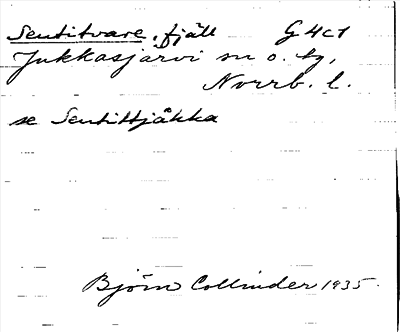 Sentitvare, fjäll G4c1
Jukkasjärvi sn o. tg,
Norrb. l.
se Sentittjåkka
Björn Collinder 1935.